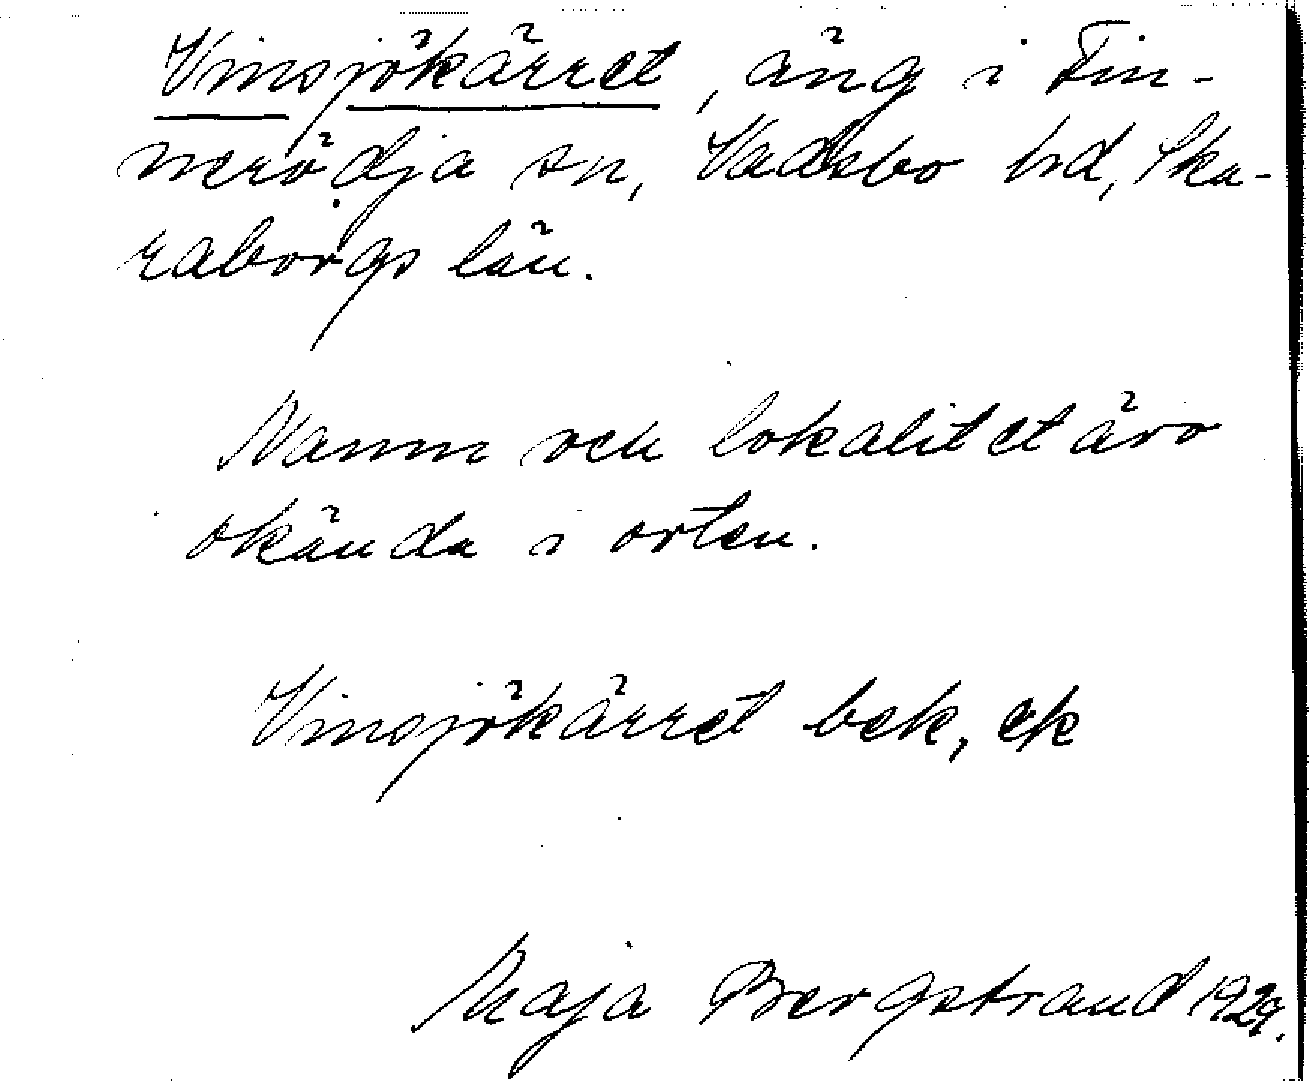 Vinsjökärret, äng i Fin-
nerödja sn, Vadsbo hd, Ska-
raborgs län.
Namn och lokalitet äro
okända i orten.
Vinsjökärret bek, ek
Maja Bergstrand 1929.